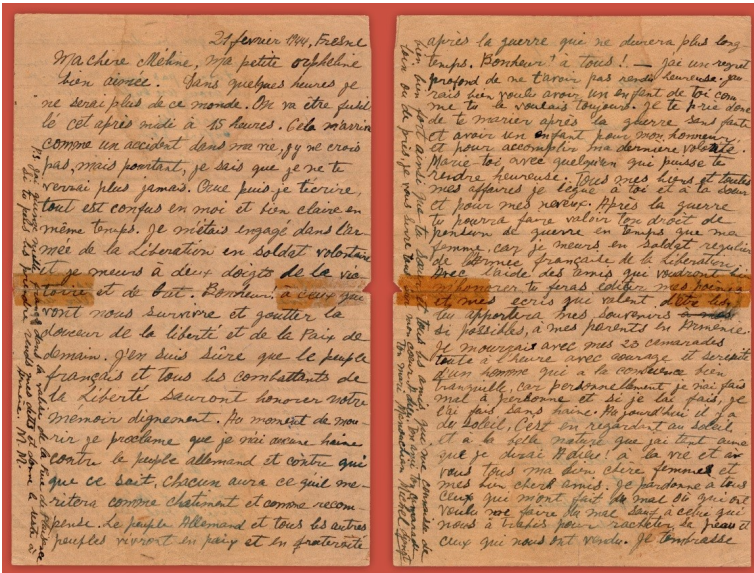 21 février 1944, Fresne
Ma chère Méline, ma petite orpheline
bien aimée. Dans quelques heures je
ne serai plus de ce monde. On va être fusil
lé cet après midi à 15 heures. Cela m'arrive
comme un accident dans ma vie, j'y ne crois
pas, mais pourtant, je sais que je ne te
verrai plus jamais. Que puis-je t'écrire,
tout est confus en moi et bien claire en
même temps. Je m'étais engagé dans l'ar-
mée de la Libération en soldat volontaire
et je meurs à deux doigts de la vic
toire et de but. Bonheur! à ceux qui
vont nous survivre et goutter la
douceur de la liberté et de la Paix de
demain. J'en suis sûre que le peuple
français et tous les combattants de
la Liberté sauront honorer notre
memoir dignement. Au moment de mou-
rir je proclame que je n'ai aucune haine
contre le peuple allemand et contre qui
que ce soit, chacun aura ce qu'il me-
ritera comme chatiment et comme recom-
pense. Le peuple Allemand et tous les autres
peuples vivront en paix et en fraternité
P.S. J'ai quinze mille francs dans la valise de la rue de Plaisance
Si tu peus les prendre rends mes dettes et donne le reste à
Armène M.M.
après la guerre qui ne durera plus long
temps. Bonheur! à tous! — J'ai un regret
profond de ne t'avoir pas rendu heureuse. J'au
rais bien voulu avoir un enfant de toi com
me tu le voulais toujours. Je te prie donc
de te marier après la guerre sans faute
et avoir un enfant pour mon honneur
et pour accomplir ma derniere volonté.
Marie toi avec quelqu'un qui puisse te
rendre heureuse. Tous mes biens et toutes
mes affaires je lègue à toi et à ta sœur
et pour mes neveux. Après la guerre
tu pourra faire valoir ton droit de
pension de guerre en temps que ma
femme, car je meurs en soldat regulier
de l'Armée française de la Libération.
Avec l'aide des amis qui voudront bien
m'honorer tu feras éditer mes poèmes
et mes ecris qui valent d'être lus
tu apportera mes souvenirs
si possibles, à mes parents en Arménie.
Je mourrais avec mes 23 camarades
toute à l'heure avec courage et serenité
d'un homme qui a la conscience bien
tranquille, car personnellement je n'ai fais
mal à personne et si je l'ai fais, je
l'ai fais sans haine. Aujourd'hui il y a
du soleil. C'est en regardant au soleil
et à la belle nature que j'ai tant aimé
que je dirai Adieu! à la vie et à
vous tous ma bien chère femme et
mes bien chers amis. Je pardonne à tous
ceux qui m'ont fait du mal où qui ont
voulu me faire du mal sauf à celui qui
nous à trahis pour racheter sa peau et
ceux qui nous ont vendu. Je t'embrasse
bien bien fort ainsi que ta sœur et tous les amis qui me connaisse de
loin ou de près, je vous serre tous sur mon cœur. Adieu. Ton ami Ton camarade
Ton mari Manouchian Michel